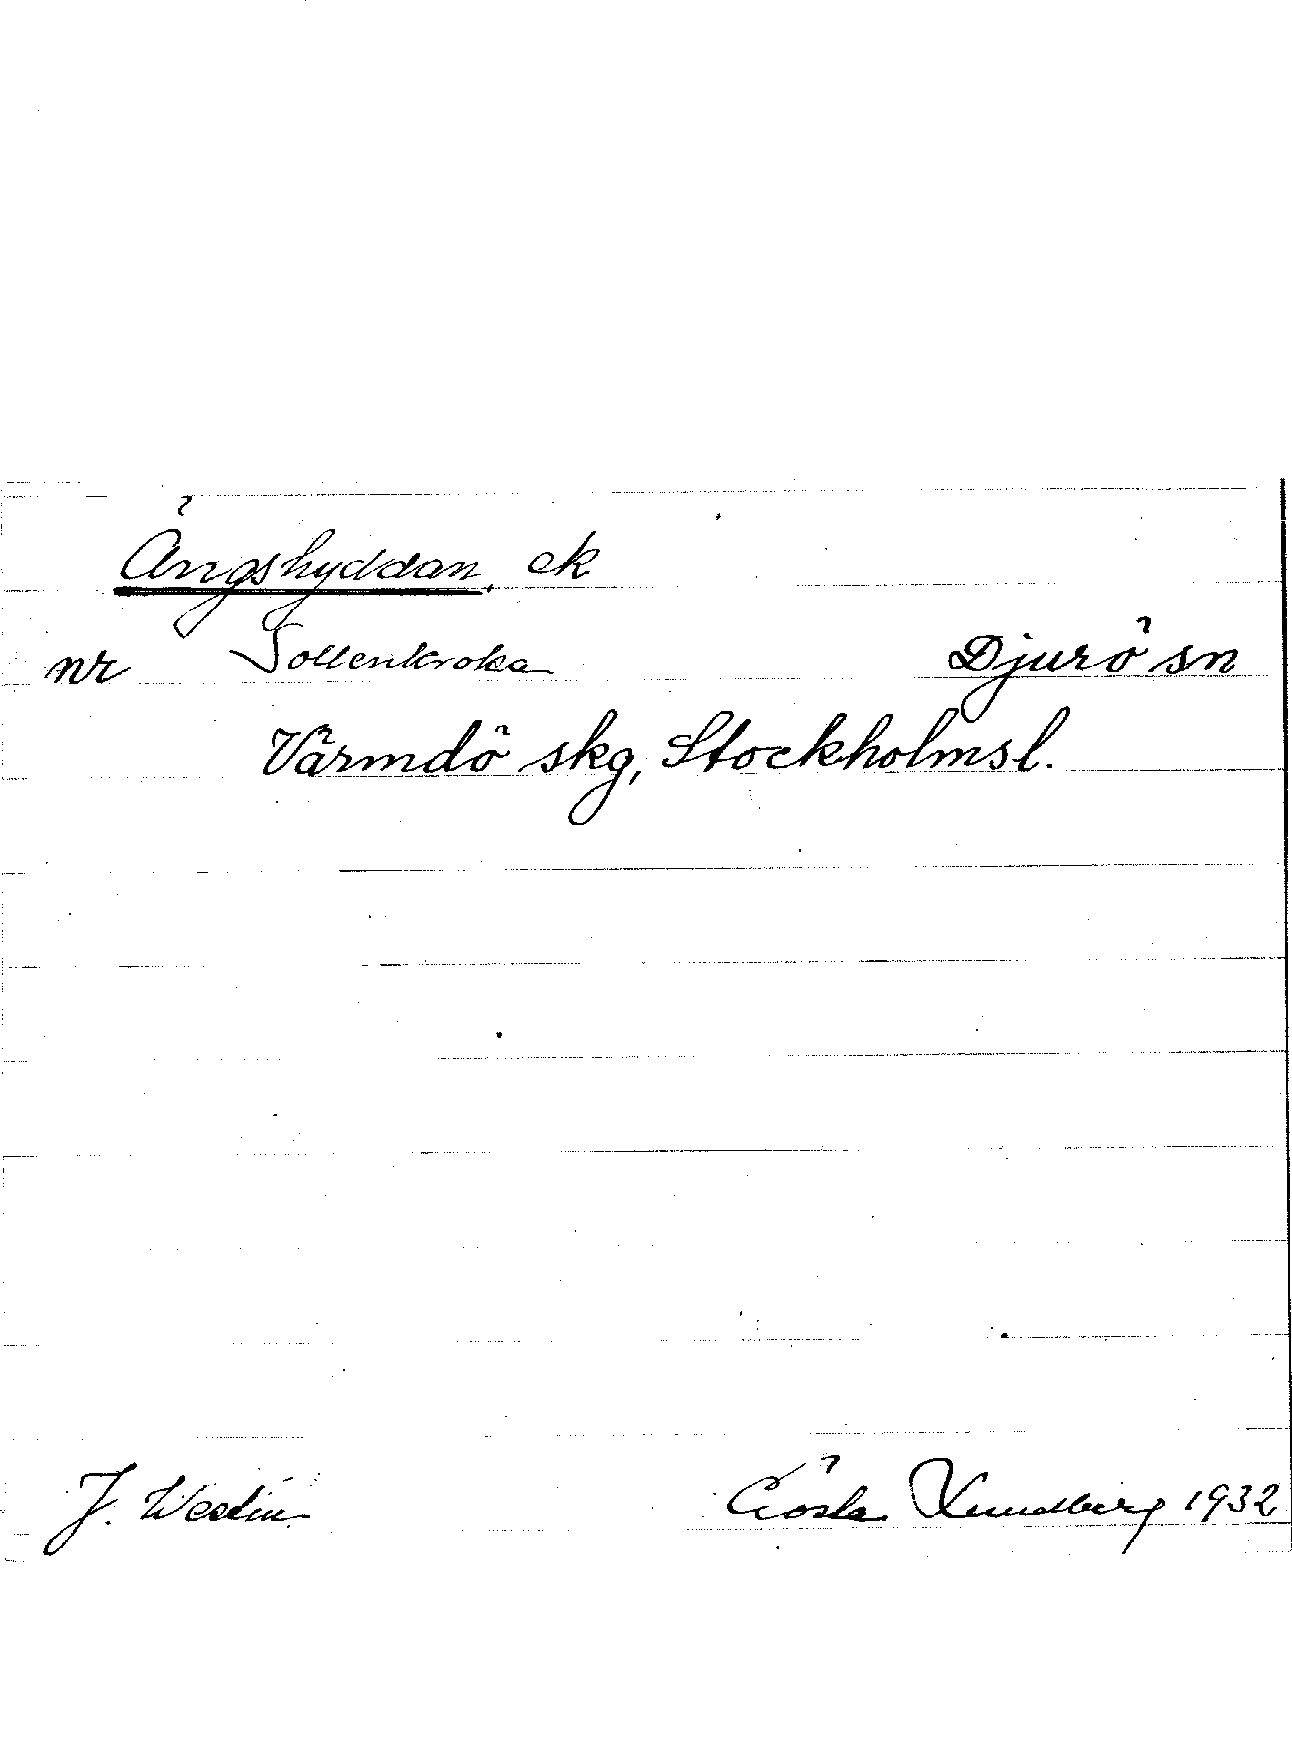 Ängshyddan, ek
nr Sollenkroka Djurö sn
Värmdö skg, Stockholmsl.
J. Westin Gösta Lundberg 1932